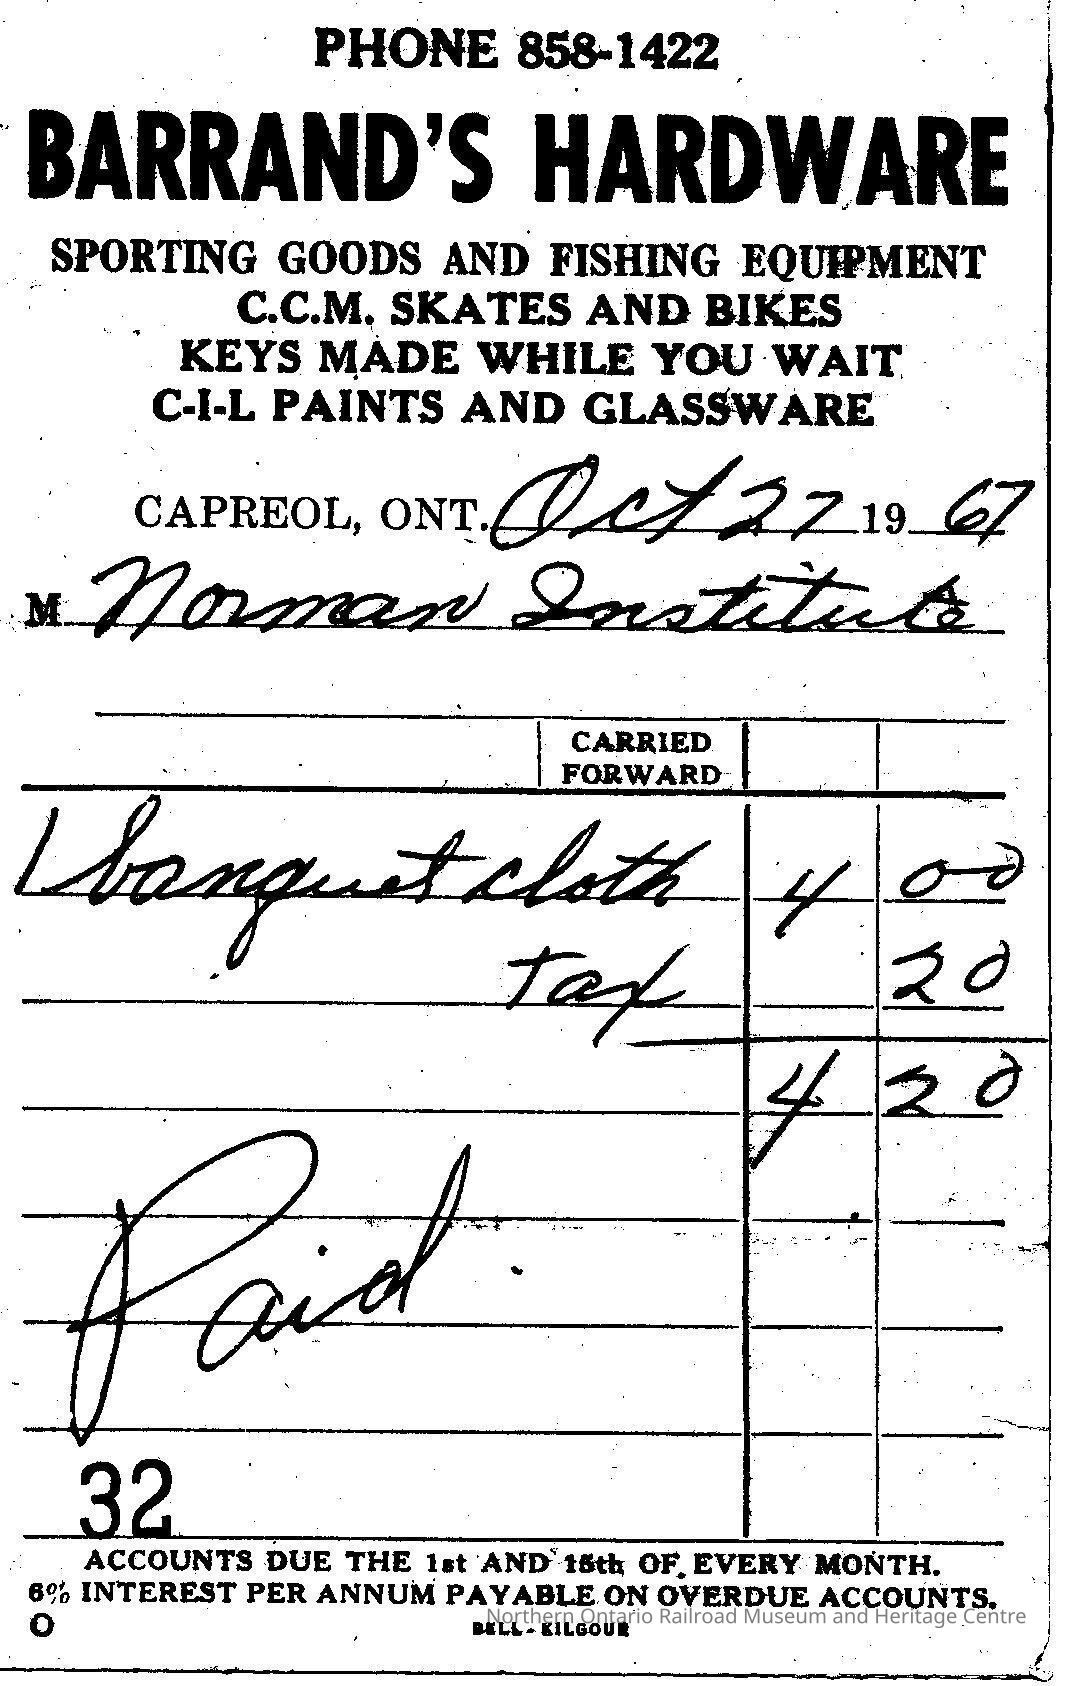 PHONE 858-1422
BARRAND'S HARDWARE
SPORTING GOODS AND FISHING EQUIPMENT
C.C.M. SKATES AND BIKES
KEYS MADE WHILE YOU WAIT
C-I-L PAINTS AND GLASSWARE
CAPREOL, ONT. Oct 27 19 67
M Norman Institute
CARRIED
FORWARD
1 banquet cloth 4 00
tax 20
4 20
Paid
32
ACCOUNTS DUE THE 1st AND 15th OF EVERY MONTH.
6% INTEREST PER ANNUM PAYABLE ON OVERDUE ACCOUNTS.
Northern Ontario Railroad Museum and Heritage Centre
O BELL-KILGOUR